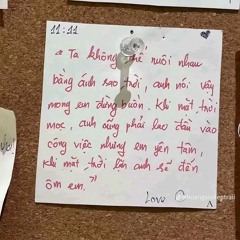 11:11
" Ta không thể nuôi nhau
bằng anh sao trời, anh nói vậy
mong em đừng buồn. Khi mặt trời
mọc, anh cũng phải lao đầu vào
công việc nhưng em yên tâm,
khi mặt trời lặn anh sẽ đến
ôm em."
Love